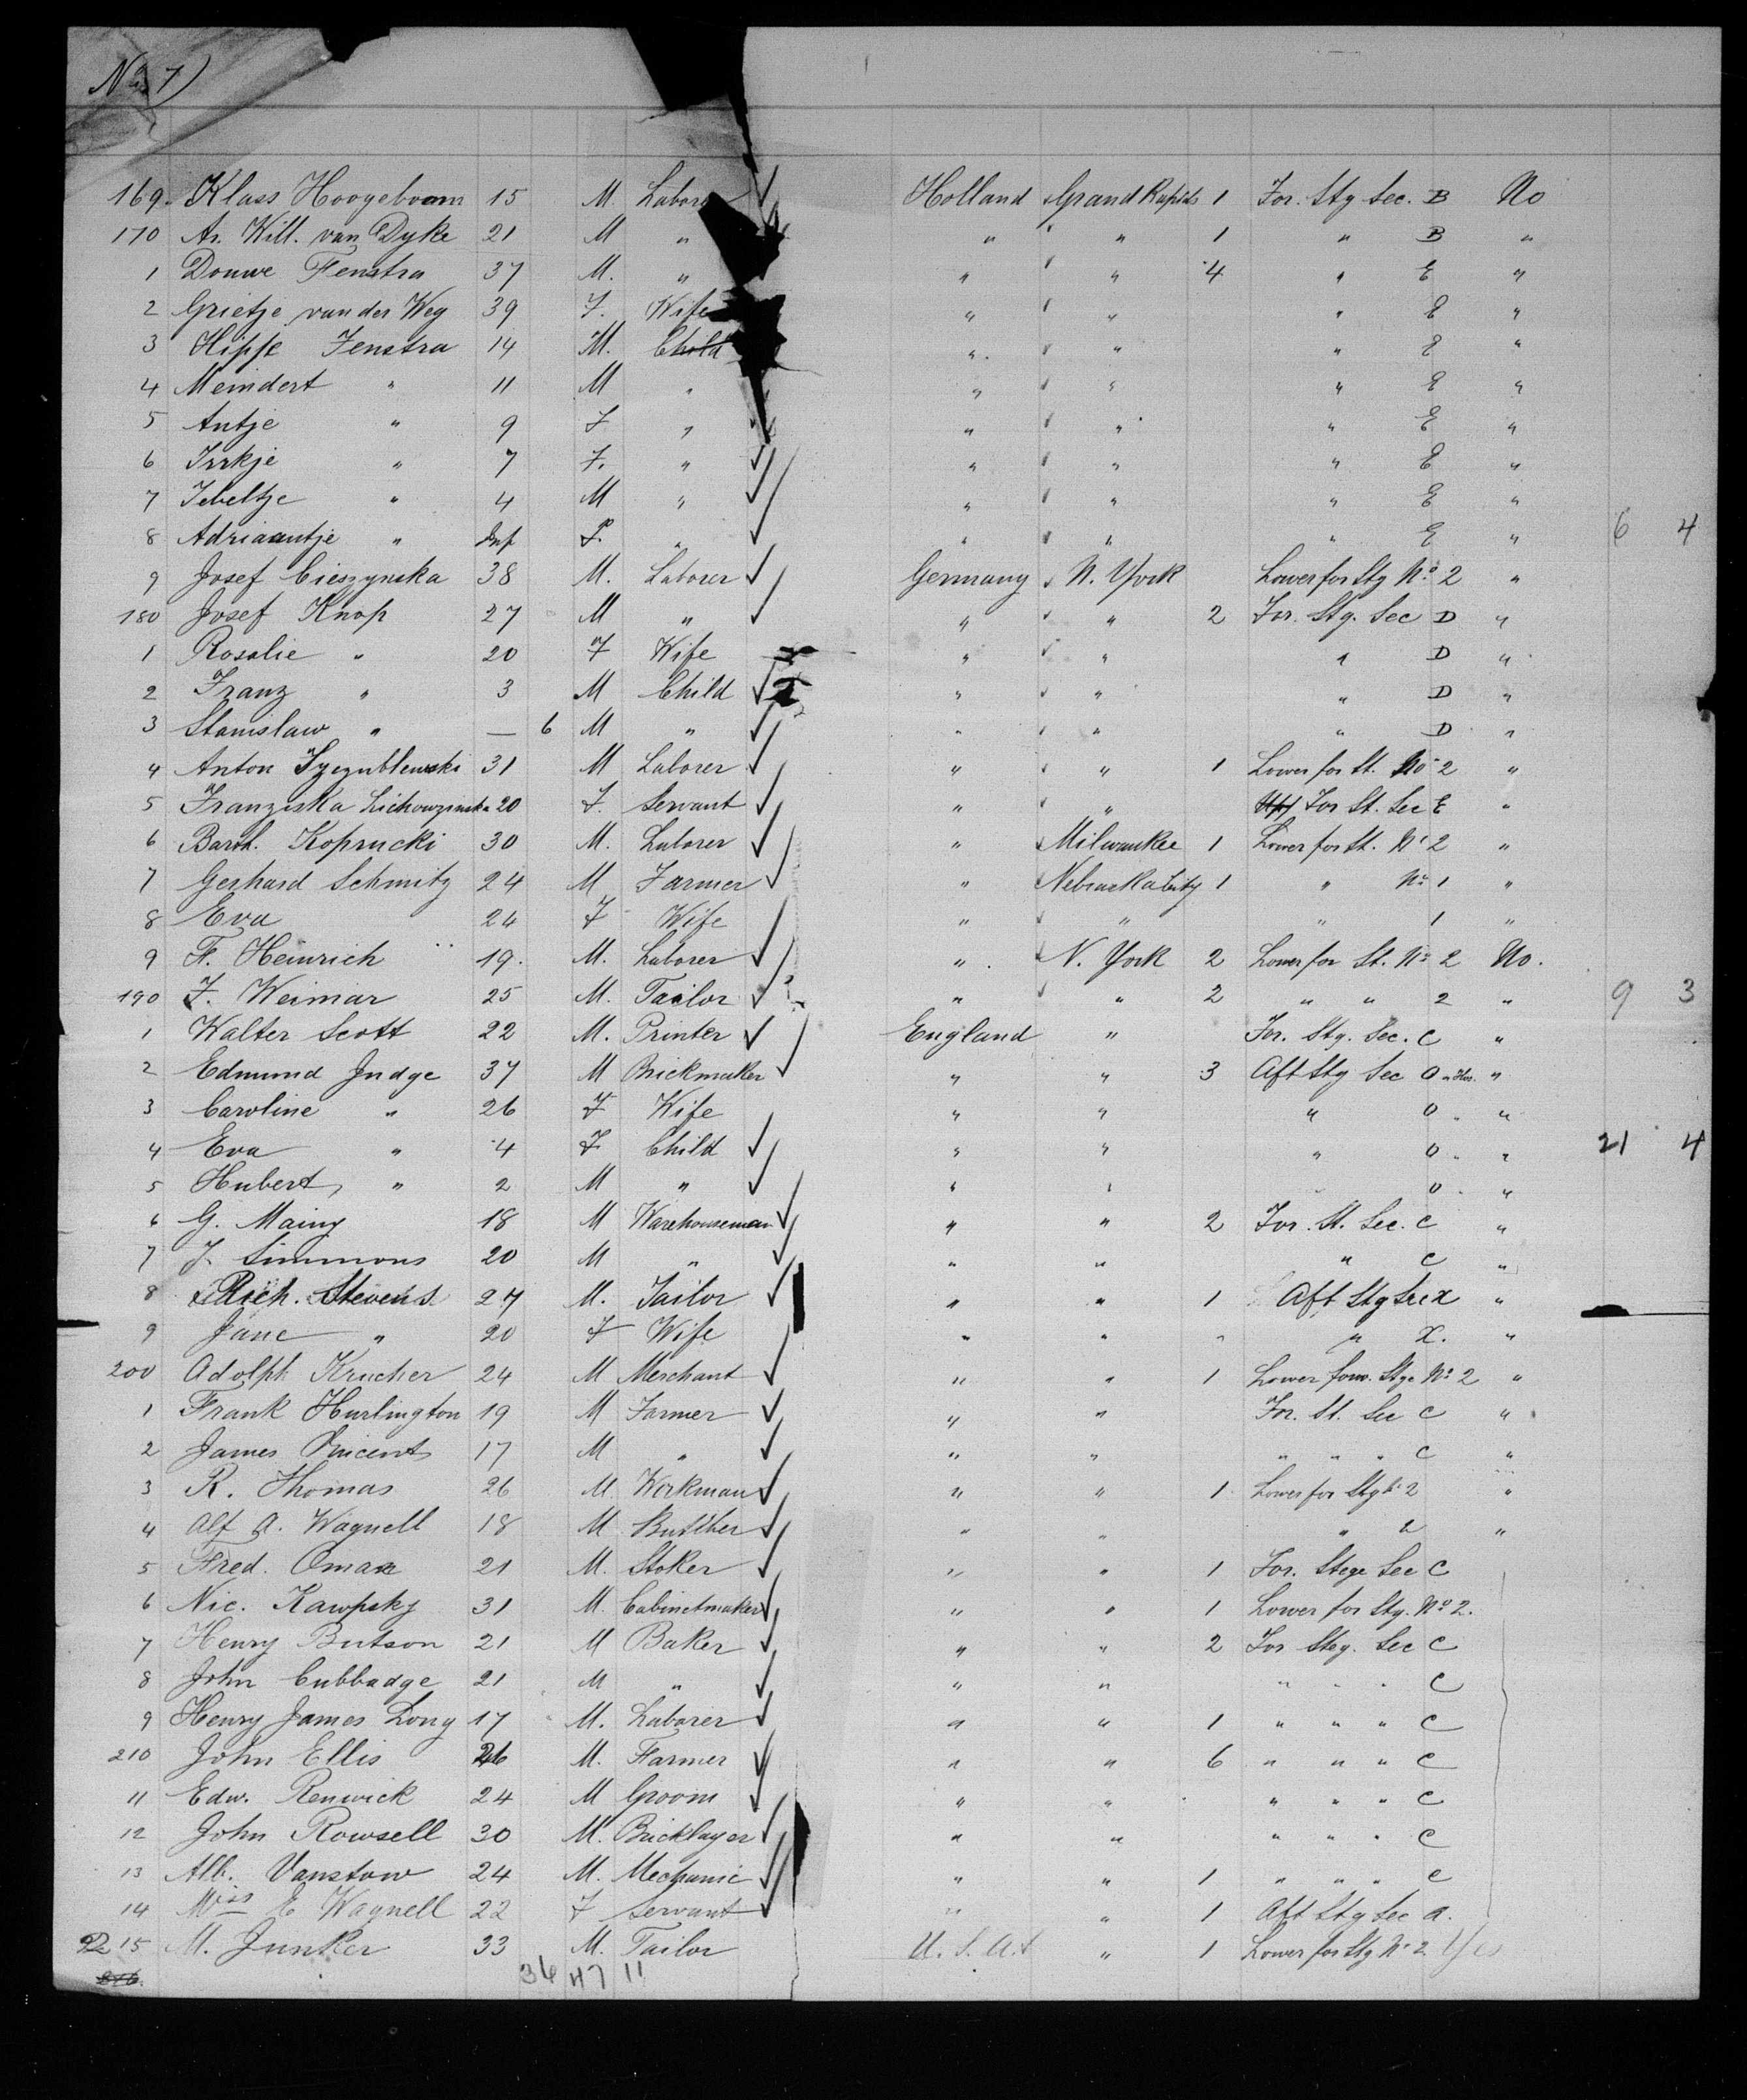 No 7)
169. Klass Hoogeboom 15 M. Labor Holland Grand Rapids 1 For. Stg Sec. B No
170 Ar. Will. van Dyke 21 M " " " 1 " B "
1 Douwe Fenstra 37 M. " " " 4 " E "
2 Grietje van der Weg 39 F. Wife " " " E "
3 Hipje Fenstra 14 M. Child " " " E "
4 Meindert " 11 M " " " " E "
5 Antje " 9 F " " " " E "
6 " 7 F. " " " " E "
7 " 4 M " " " " E "
8 Adriaantje " Inf F. " " " " E " 6 4
9 Josef Cieszynska 38 M. Laborer Germany N. York Lower for Stg No 2 "
180 Josef Knop 27 M " " " 2 For. Stg. Sec D "
1 Rosalie " 20 F Wife " " " D "
2 Franz " 3 M Child " " " D "
3 Stanislaw " — 6 M " " " " D "
4 Anton 31 M Laborer " " 1 Lower for St. No 2 "
5 Franziska 20 F. Servant " " For St. Sec E "
6 Barth. Koprucki 30 M. Laborer " Milwaukee 1 Lower for St. No 2 "
7 Gerhard Schmitz 24 M Farmer " Nebraska City 1 " No 1 "
8 Eva 24 F Wife " " " 1 "
9 F. Heinrich 19. M. Laborer " N. York 2 Lower for St. No 2 No.
190 F. Weimar 25 M. Tailor " " 2 " " 2 " 9 3
1 Walter Scott 22 M. Printer England " For. Stg. Sec. C "
2 Edmund Judge 37 M Brickmaker " " 3 Aft Stg Sec O "
3 Caroline " 26 F Wife " " " O "
4 Eva " 4 F Child " " " O " 21 4
5 Hubert, " 2 M " " " " O "
6 G. Mainy 18 M Warehouseman " " 2 For. St. Sec. C "
7 J. Simmons 20 M " " " " C "
8 Rich. Stevens 27 M. Tailor " " 1 Aft Stg Sec X "
9 Jane " 20 F Wife " " " " X. "
200 Adolph Krucher 24 M Merchant " " 1 Lower forw. Stge No 2 "
1 Frank Hurlington 19 M Farmer " " For. St. Sec C "
2 James Vincent 17 M " " " " " " C "
3 R. Thomas 26 M Workman " " 1 Lower for Stg 2 "
4 Alf A. Wagnell 18 M Butcher " " " 2 "
5 Fred. Omax 21 M. Stoker " " 1 For. Stege Sec C
6 Nic. Kawpsky 31 M. Cabinetmaker " " 1 Lower for Stg. No 2.
7 Henry Butson 21 M Baker " " 2 For Steg. Sec C
8 John Cubbadge 21 M " " " " " " C
9 Henry James Long 17 M. Laborer " " 1 " " " C
210 John Ellis 26 M. Farmer " " 6 " " " C
11 Edw. Renwick 24 M Groom " " " " " C
12 John Rowsell 30 M. Bricklayer " " " " " C
13 Alb. Vanstow 24 M. Mechanic " " 1 " " " C
14 Miss E Wagnell 22 F Servant " " 1 Aft Stg Sec a.
15 M. Junker 33 M. Tailor U. S. A. " 1 Lower for Stg No 2 Yes
36 47 11